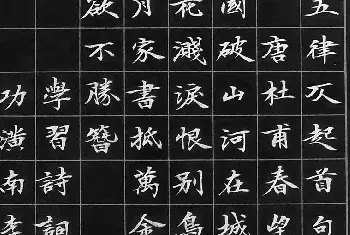 五律仄起首句
唐杜甫春望
國破山河在城
花濺淚恨別鳥
月家書抵萬金
欲不勝簪
學習詩詞
功南李